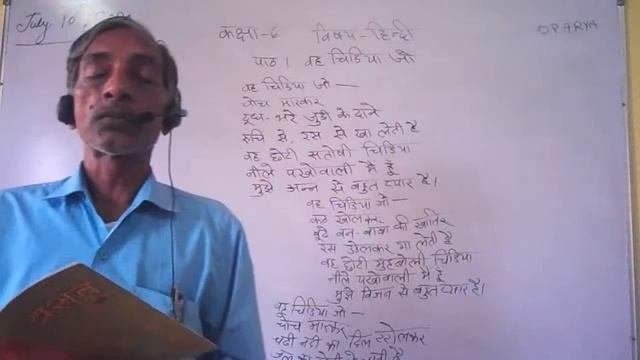 July 10,
कक्षा-6 विषय-हिन्दी
O P ARYA
पाठ 1 वह चिडिया जो
वह चिडिया जो —
चोंच मारकर
दूध-भरे जुंडी के दाने
रुचि से, रस से खा लेती है
वह छोटी संतोषी चिडिया
नीले पंखोंवाली मैं हूँ
मुझे अन्न से बहुत प्यार है।
वह चिडिया जो —
कंठ खोलकर
बूढे वन-बाबा की खातिर
रस उंडेलकर गा लेती है
वह छोटी मुंहबोली चिडिया
नीले पंखोंवाली मैं हूँ
मुझे विजन से बहुत प्यार है।
वह चिडिया जो —
चोंच मारकर
चढी नदी का दिल टटोलकर
जल का मोती ले जाती है
वसंत